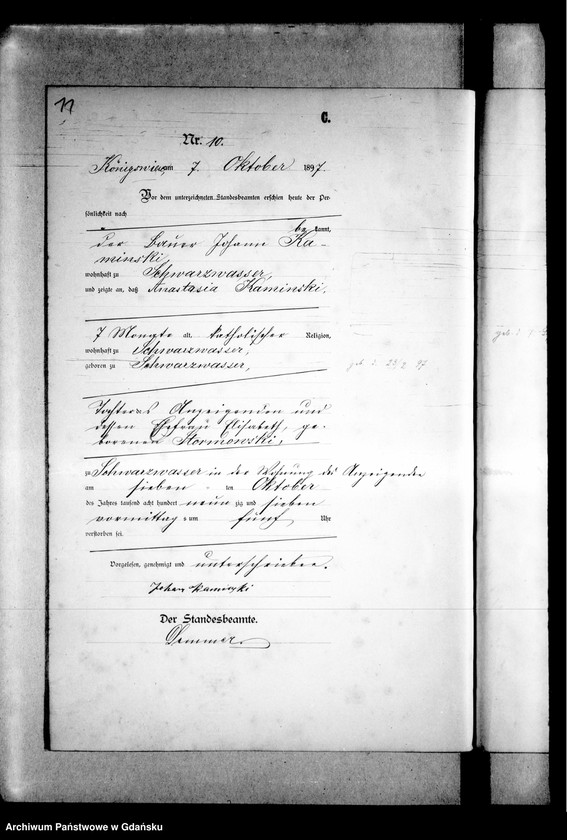 11
C.
Nr. 10.
Königswiese am 7. Oktober 1897.
Vor dem unterzeichneten Standesbeamten erschien heute der Per-
sönlichkeit nach
be kannt,
der Bauer Johann Ka-
minski,
wohnhaft zu Schwarzwasser,
und zeigte an, daß Anastasia Kaminski,
7 Monate alt, katholischer Religion,
wohnhaft zu Schwarzwasser,
geboren zu Schwarzwasser,
geb : 23/2 97
Tochter des Anzeigenden und
dessen Ehefrau Elisabeth, ge-
borenen
zu Schwarzwasser in der Wohnung des Anzeigenden
am sieben ten Oktober
des Jahres tausend acht hundert neun zig und sieben
vormittags um fünf Uhr
verstorben sei.
Vorgelesen, genehmigt und unterschrieben.
Johan Kaminski
Der Standesbeamte.
Archiwum Państwowe w Gdańsku